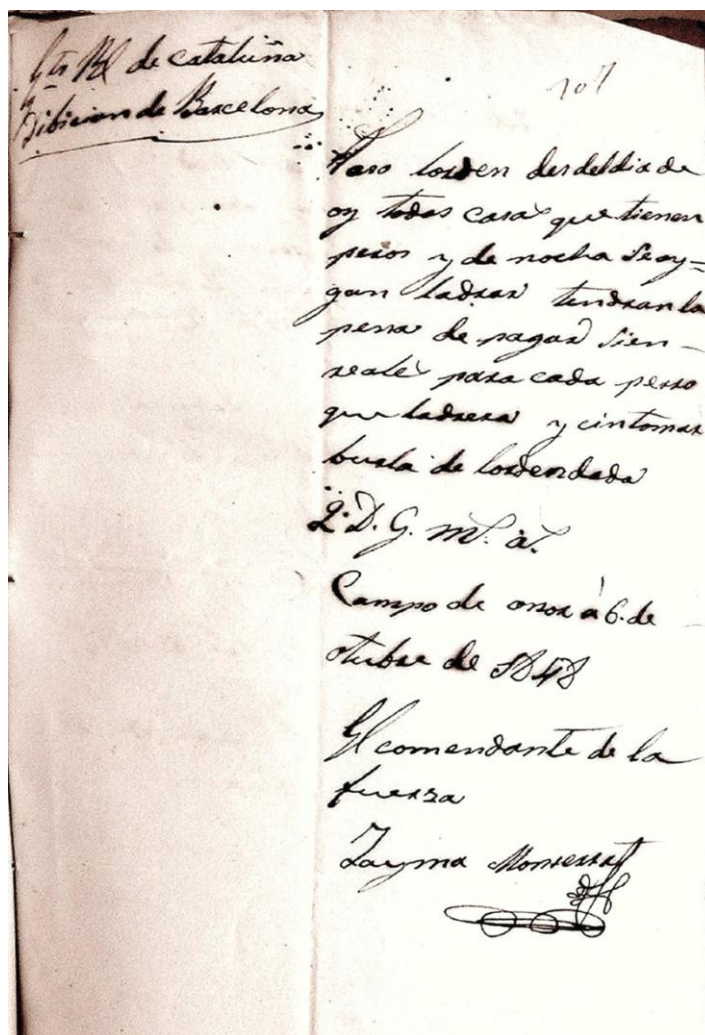 de Cataluña
Dibicion de Barcelona
107
Paso lorden desdeldia de
oy todas casas que tienen
peros y de nocha se oy=
gan ladrar tendran la
pena de pagar sien
reales para cada perro
que ladrera y cintomar
burla de lordendada
D. G. m. a.
Campo de onor a 6. de
otubre de 1848
El comendante de la
fuerza
Jayma Monserrat